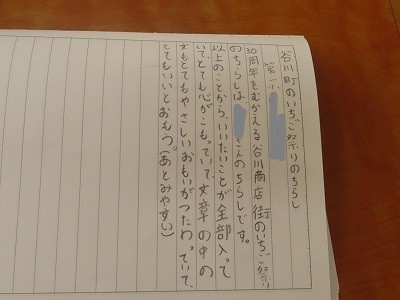 谷川町のいちご祭りのちらし
第一小
30周年をむかえる谷川商店街のいちご祭り
のちらしは さんのちらしです。
以上のことから、いいたいことが全部入って
いて、とても心がこもっていて、文章の中の
文もとてもやさしいおもいがつたわっていて、
とてもいいとおもう。(あとみやすい)